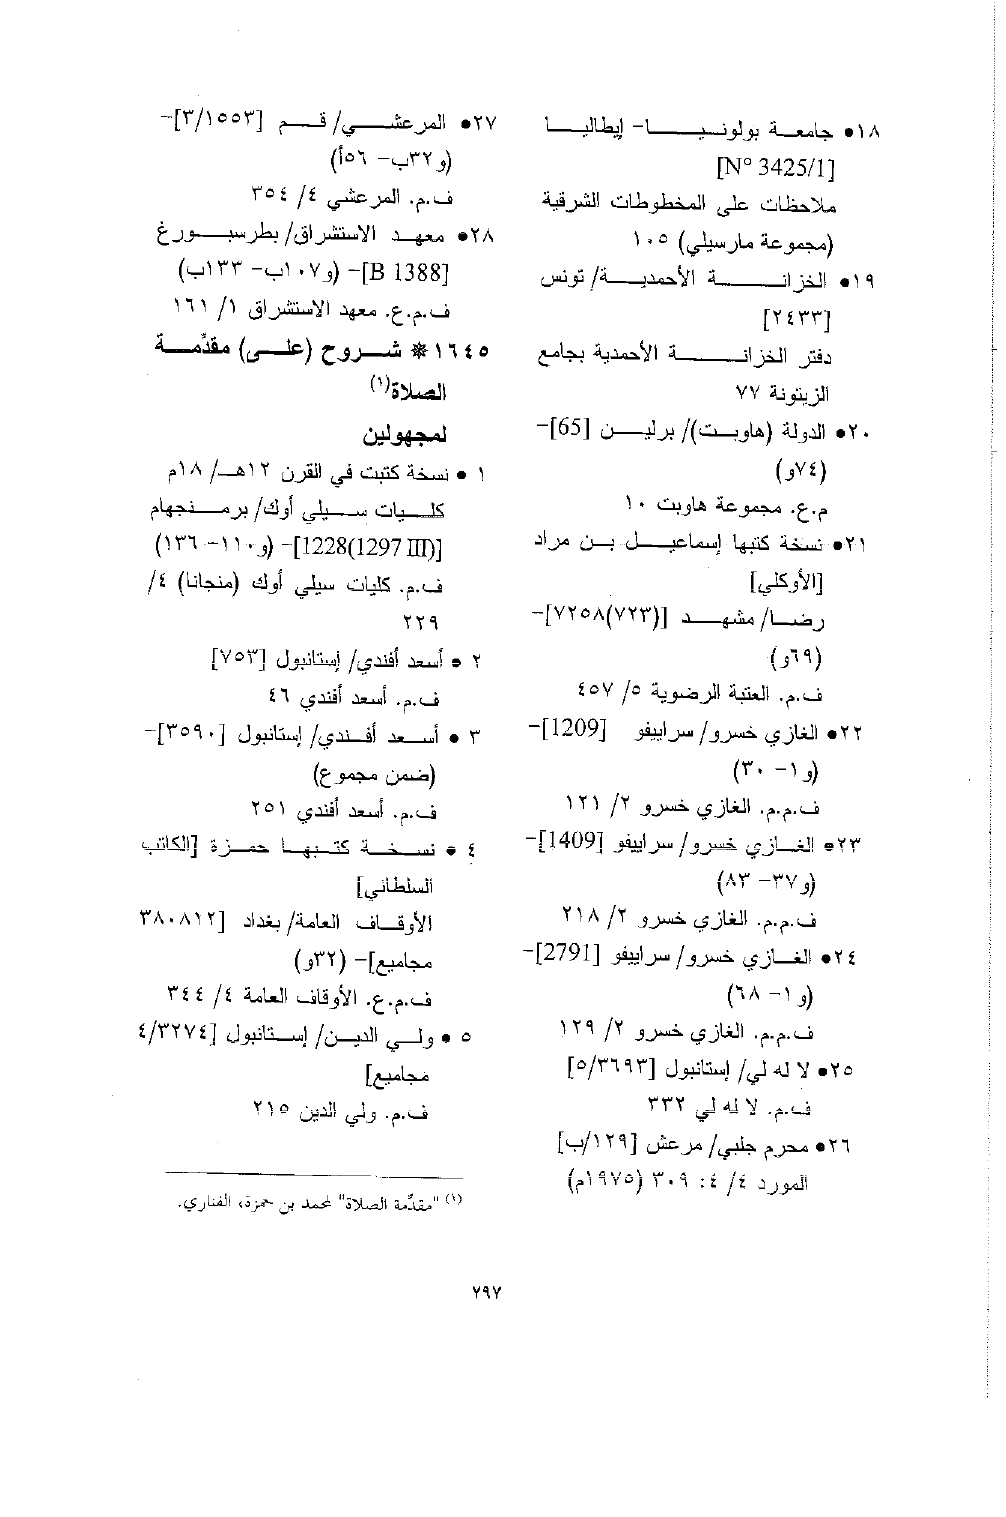 ١٨• جامعة بولونيا- إيطاليا
[N° 3425/1]
ملاحظات على المخطوطات الشرقية
(مجموعة مارسيلي) ١٠٥
١٩• الخزانة الأحمدية/ تونس
[٢٤٣٣]
دفتر الخزانة الأحمدية بجامع
الزيتونة ٧٧
٢٠• الدولة (هاوبت)/ برلين [65]-
(٧٤و)
م.ع. مجموعة هاوبت ١٠
٢١• نسخة كتبها إسماعيل بن مراد
[الأوكلي]
رضا/ مشهد [(٧٢٣)٧٢٥٨]-
(٦٩و)
ف.م. العتبة الرضوية ٥/ ٤٥٧
٢٢• الغازي خسرو/ سراييفو [1209]-
(و١- ٣٠)
ف.م.م. الغازي خسرو ٢/ ١٢١
٢٣• الغازي خسرو/ سراييفو [1409]-
(و٣٧- ٨٣)
ف.م.م. الغازي خسرو ٢/ ٢١٨
٢٤• الغازي خسرو/ سراييفو [2791]-
(و١- ٦٨)
ف.م.م. الغازي خسرو ٢/ ١٢٩
٢٥• لا له لي/ إستانبول [٥/٣٦٩٣]
ف.م. لا له لي ٣٣٢
٢٦• محرم جلبي/ مرعش [١٢٩/ب]
المورد ٤/ ٤: ٣٠٩ (١٩٧٥م)
٢٧• المرعشي/ قم [٣/١٥٥٣]-
(و٣٢ب- ٥٦أ)
ف.م. المرعشي ٤/ ٣٥٤
٢٨• معهد الاستشراق/ بطرسبورغ
[B 1388]- (و١٠٧ب- ١٣٣ب)
ف.م.ع. معهد الاستشراق ١/ ١٦١
١٦٤٥ * شروح (على) مقدِّمة
الصلاة(١)
لمجهولين
١ • نسخة كتبت في القرن ١٢هـ/ ١٨م
كليات سيلي أوك/ برمنجهام
[1228(1297 III)]- (و١١٠- ١٣٦)
ف.م. كليات سيلي أوك (منجانا) ٤/
٢٢٩
٢ • أسعد أفندي/ إستانبول [٧٥٣]
ف.م. أسعد أفندي ٤٦
٣ • أسعد أفندي/ إستانبول [٣٥٩٠]-
(ضمن مجموع)
ف.م. أسعد أفندي ٢٥١
٤ • نسخة كتبها حمزة [الكاتب
السلطاني]
الأوقاف العامة/ بغداد [٣٨٠٨١٢
مجاميع]- (٣٢و)
ف.م.ع. الأوقاف العامة ٤/ ٣٤٤
٥ • ولي الدين/ إستانبول [٤/٣٢٧٤
مجاميع]
ف.م. ولي الدين ٢١٥
(١) "مقدِّمة الصلاة" لمحمد بن حمزة، الفناري.
٢٩٧